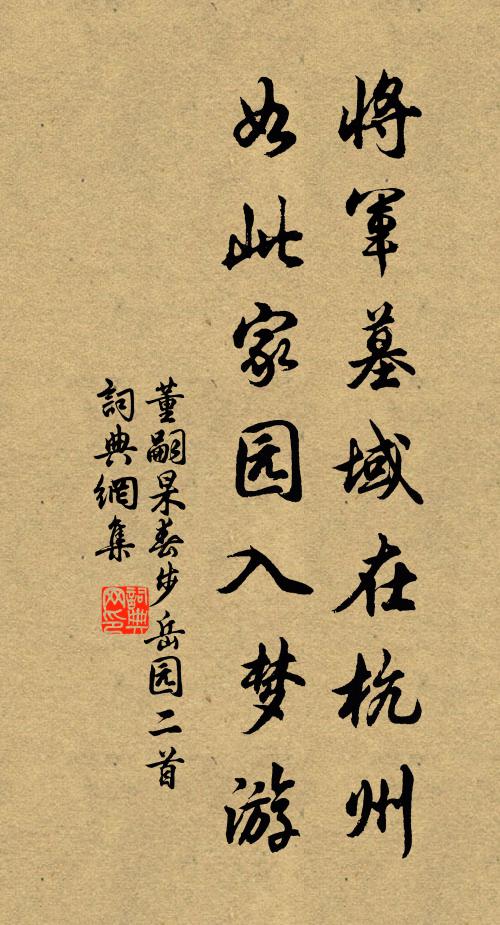 将军墓域在杭州
如此家园入梦游
董嗣杲春步岳园二首
詞典網集
詞典网印